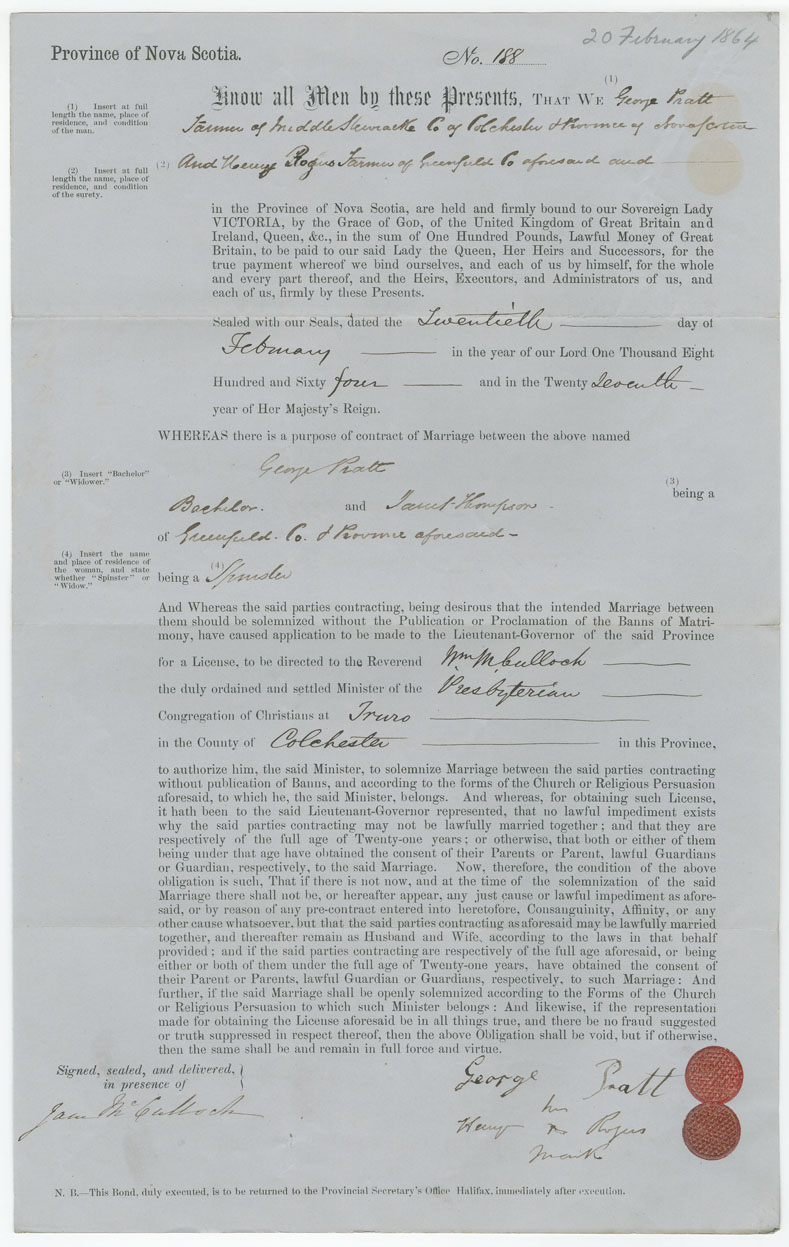 20 February 1864
Province of Nova Scotia.
No. 188
(1)
Know all Men by these Presents, THAT WE George Pratt
(1) Insert at full
length the name, place of
residence, and condition
of the man.
Farmer of Middle Stewiacke Co of Colchester & Province of Nova Scotia
(2) And Henry Rogers Farmer of Greenfield Co aforesaid and
(2) Insert at full
length the name, place of
residence, and condition
of the surety.
in the Province of Nova Scotia, are held and firmly bound to our Sovereign Lady
VICTORIA, by the Grace of GOD, of the United Kingdom of Great Britain and
Ireland, Queen, &c., in the sum of One Hundred Pounds, Lawful Money of Great
Britain, to be paid to our said Lady the Queen, Her Heirs and Successors, for the
true payment whereof we bind ourselves, and each of us by himself, for the whole
and every part thereof, and the Heirs, Executors, and Administrators of us, and
each of us, firmly by these Presents.
Sealed with our Seals, dated the Twentieth day of
February in the year of our Lord One Thousand Eight
Hundred and Sixty four and in the Twenty Seventh
year of Her Majesty's Reign.
WHEREAS there is a purpose of contract of Marriage between the above named
George Pratt
(3) Insert "Bachelor"
or "Widower."
(3)
being a
Bachelor. and Janet Thompson
of Greenfield. Co. & Province aforesaid
(4) Insert the name
and place of residence of
the woman, and state
whether "Spinster" or
"Widow."
(4)
being a Spinster
And Whereas the said parties contracting, being desirous that the intended Marriage between
them should be solemnized without the Publication or Proclamation of the Banns of Matri-
mony, have caused application to be made to the Lieutenant-Governor of the said Province
for a License, to be directed to the Reverend Wm McCulloch
the duly ordained and settled Minister of the Presbyterian
Congregation of Christians at Truro
in the County of Colchester in this Province,
to authorize him, the said Minister, to solemnize Marriage between the said parties contracting
without publication of Banns, and according to the forms of the Church or Religious Persuasion
aforesaid, to which he, the said Minister, belongs. And whereas, for obtaining such License,
it hath been to the said Lieutenant-Governor represented, that no lawful impediment exists
why the said parties contracting may not be lawfully married together; and that they are
respectively of the full age of Twenty-one years; or otherwise, that both or either of them
being under that age have obtained the consent of their Parents or Parent, lawful Guardians
or Guardian, respectively, to the said Marriage. Now, therefore, the condition of the above
obligation is such, That if there is not now, and at the time of the solemnization of the said
Marriage there shall not be, or hereafter appear, any just cause or lawful impediment as afore-
said, or by reason of any pre-contract entered into heretofore, Consanguinity, Affinity, or any
other cause whatsoever, but that the said parties contracting as aforesaid may be lawfully married
together, and thereafter remain as Husband and Wife, according to the laws in that behalf
provided; and if the said parties contracting are respectively of the full age aforesaid, or being
either or both of them under the full age of Twenty-one years, have obtained the consent of
their Parent or Parents, lawful Guardian or Guardians, respectively, to such Marriage: And
further, if the said Marriage shall be openly solemnized according to the Forms of the Church
or Religious Persuasion to which such Minister belongs: And likewise, if the representation
made for obtaining the License aforesaid be in all things true, and there be no fraud suggested
or truth suppressed in respect thereof, then the above Obligation shall be void, but if otherwise,
then the same shall be and remain in full force and virtue.
Signed, sealed, and delivered,
in presence of
George Pratt
McCulloch
his
Henry x Rogers
mark
N. B.—This Bond, duly executed, is to be returned to the Provincial Secretary's Office Halifax, immediately after execution.